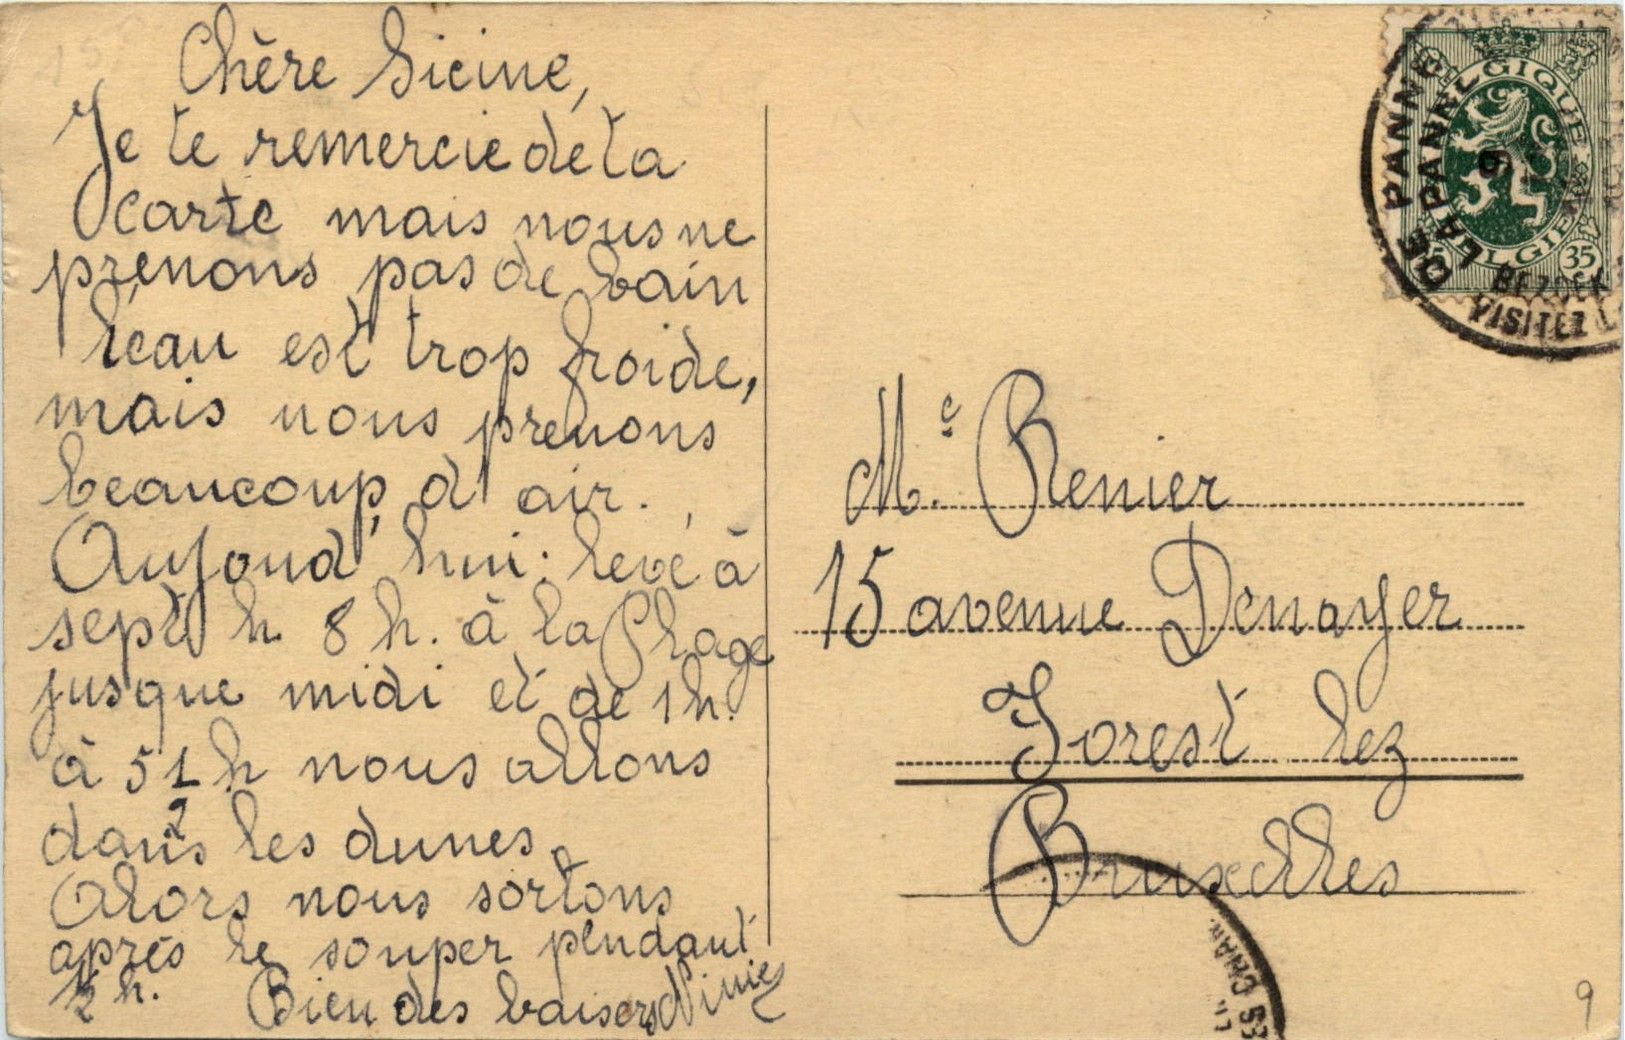 Chère Sicine,
Je te remercie de ta
carte mais nous ne
prenons pas de bain
l'eau est trop froide,
mais nous prenons
beaucoup d'air.
Aujoud'hui: levé à
sept h 8 h. à la plage
jusque midi et de 1h.
à 5 1/2 h nous allons
dans les dunes.
Alors nous sortons
après le souper pendant
1/2 h. Bien des baisers Ninie
BELGIQUE
BELGIE
35
DE PANNE
LA PANNE
9
BEZOEK
VISITEZ
Me. Renier
15 avenue Denayer
Forest lez
Bruxelles
9